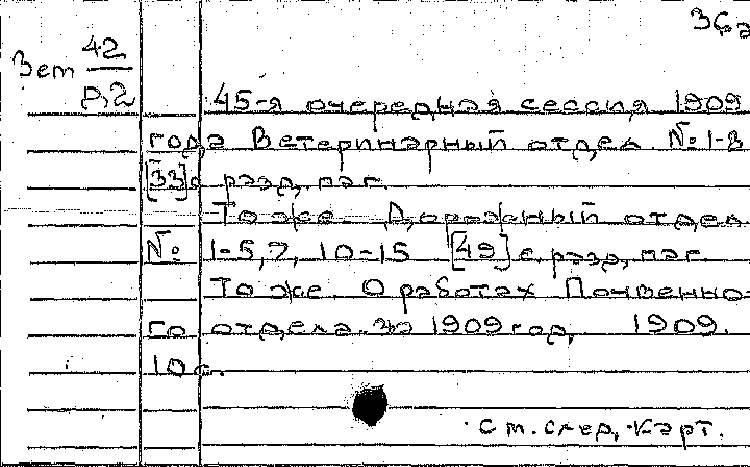 Зет 42
р,2
45-я очередная сессия 1909
года Ветеринарный отдел №1-8
[33]с разд, паг.
То же Дорожный отдел
№ 1-5,7, 10-15 [49] с. разд, паг.
То же О работах Почвенно-
го отдела за 1909 год, 1909.
10 с.
См. след, карт.